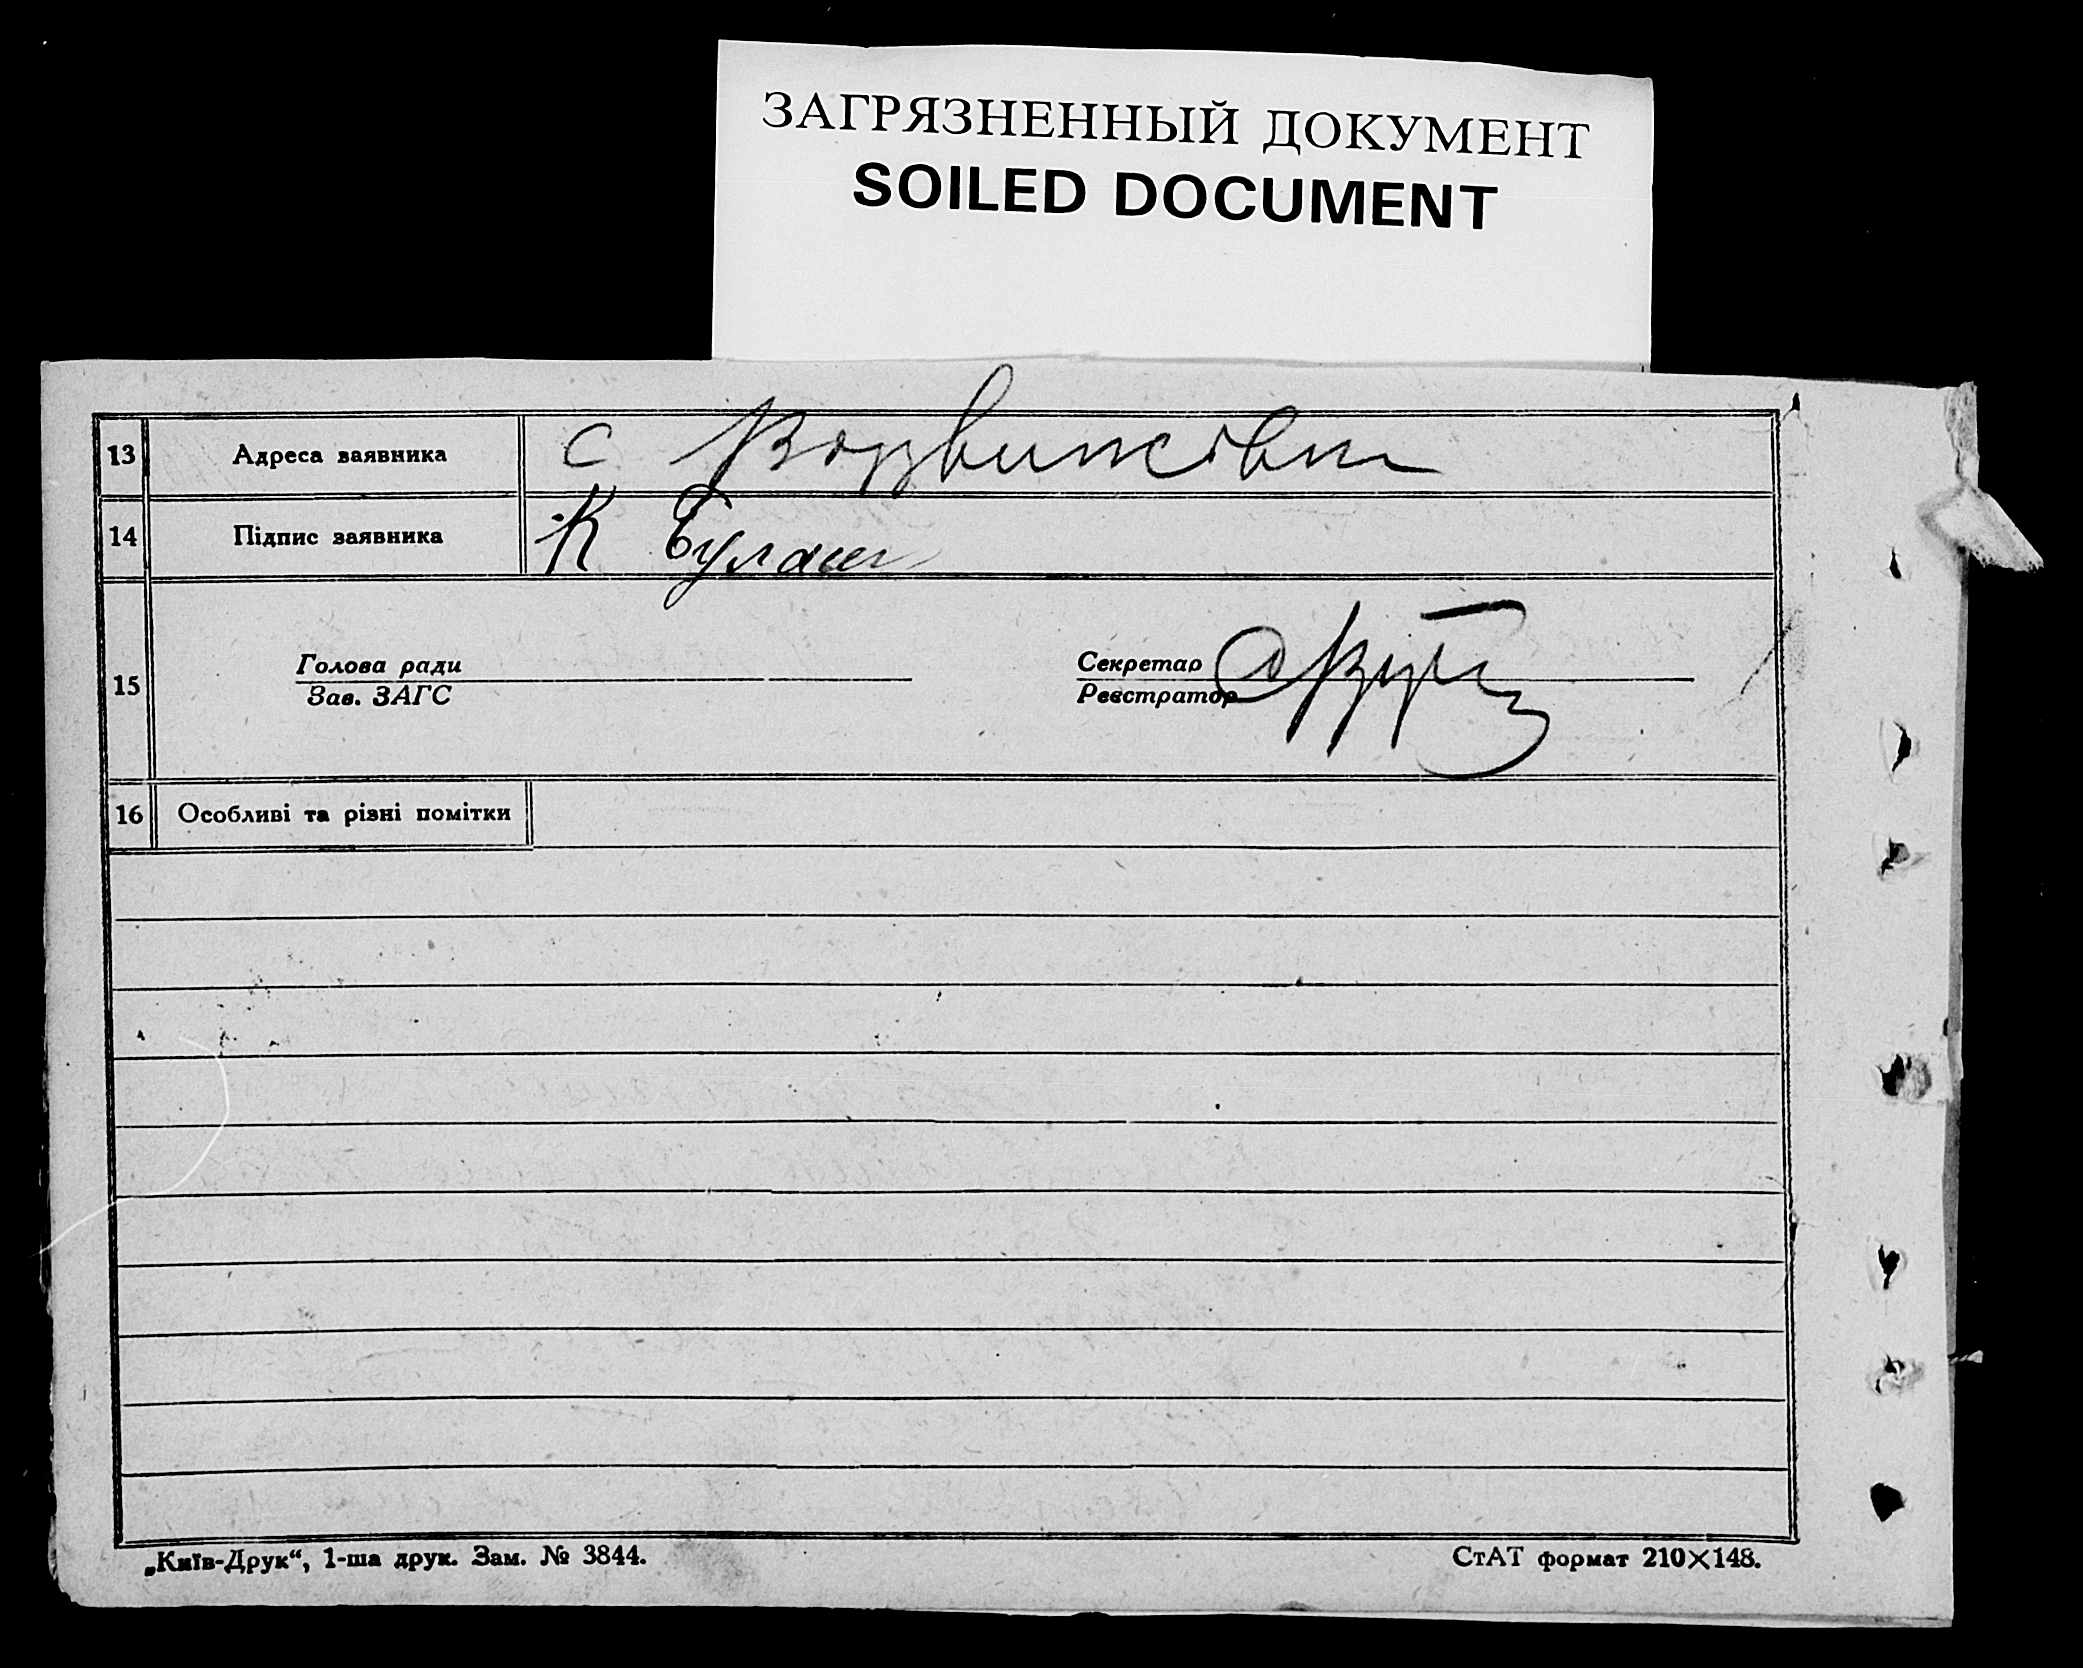 ЗАГРЯЗНЕННЫЙ ДОКУМЕНТ
SOILED DOCUMENT
13 Адреса заявника с Воздвижівка
14 Підпис заявника К Булаш
15 Голова ради
Зав. ЗАГС
Секретар
Реєстратор
16 Особливі та різні помітки
„Київ-Друк“, 1-ша друк. Зам. № 3844.
СтАТ формат 210×148.